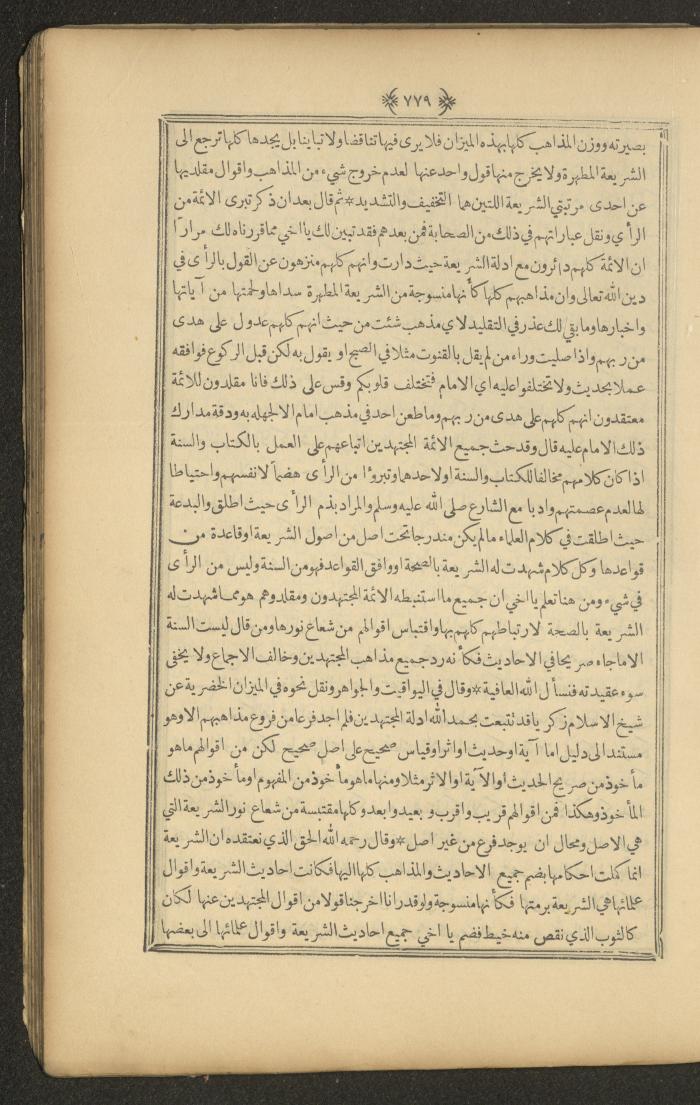 ٧٧٩
بصيرته ووزن المذاهب كلها بهذه الميزان فلا يرى فيها تناقضا ولا تباينا بل يجدها كلها ترجع الى
الشريعة المطهرة ولا يخرج منها قول واحد عنها لعدم خروج شيء من المذاهب واقوال مقلديها
عن احدى مرتبتي الشريعة اللتين هما التخفيف والتشديد * ثم قال بعد ان ذكر تبرى الائمة من
الرأي ونقل عباراتهم في ذلك من الصحابة فمن بعدهم فقد تبين لك يا اخي مما قررناه لك مرارا
ان الائمة كلهم دائرون مع ادلة الشريعة حيث دارت وانهم كلهم منزهون عن القول بالرأى في
دين الله تعالى وان مذاهبهم كلها كأنها منسوجة من الشريعة المطهرة سداها ولحمتها من آياتها
واخبارها وما بقي لك عذر في التقليد لاي مذهب شئت من حيث انهم كلهم عدول على هدى
من ربهم واذا صليت وراء من لم يقل بالقنوت مثلا في الصبح او يقول به لكن قبل الركوع فوافقه
عملا بحديث ولا تختلفوا عليه اي الامام فتختلف قلوبكم وقس على ذلك فانا مقلدون للائمة
معتقدون انهم كلهم على هدى من ربهم وما طعن احد في مذهب امام الا لجهله به ودقة مدارك
ذلك الامام عليه قال وقد حث جميع الائمة المجتهدين اتباعهم على العمل بالكتاب والسنة
اذا كان كلامهم مخالفا للكتاب والسنة او لاحدهما وتبروا من الرأى هضما لانفسهم واحتياطا
لها لعدم عصمتهم وادبا مع الشارع صلى الله عليه وسلم والمراد بذم الرأى حيث اطلق والبدعة
حيث اطلقت في كلام العلماء ما لم يكن مندرجا تحت اصل من اصول الشريعة او قاعدة من
قواعدها وكل كلام شهدت له الشريعة بالصحة او وافق القواعد فهو من السنة وليس من الرأى
في شيء ومن هنا تعلم يا اخي ان جميع ما استنبطه الائمة المجتهدون ومقلدوهم هو مما شهدت له
الشريعة بالصحة لارتباطهم كلهم بها واقتباس اقوالهم من شعاع نورها ومن قال ليست السنة
الا ما جاء صريحا في الاحاديث فكأنه رد جميع مذاهب المجتهدين وخالف الاجماع ولا يخفى
سوء عقيدته فنسأل الله العافية * وقال في اليواقيت والجواهر ونقل نحوه في الميزان الخضرية عن
شيخ الاسلام زكريا قد تتبعت بحمد الله ادلة المجتهدين فلم اجد فرعا من فروع مذاهبهم الا وهو
مستند الى دليل اما آية او حديث او اثر او قياس صحيح على اصل صحيح لكن من اقوالهم ما هو
مأخوذ من صريح الحديث او الآية او الاثر مثلا ومنها ما هو مأخوذ من المفهوم او مأخوذ من ذلك
المأخوذ وهكذا فمن اقوالهم قريب واقرب وبعيد وابعد وكلها مقتبسة من شعاع نور الشريعة التي
هي الاصل ومحال ان يوجد فرع من غير اصل * وقال رحمه الله الحق الذي نعتقده ان الشريعة
انما كملت احكامها بضم جميع الاحاديث والمذاهب كلها اليها فكانت احاديث الشريعة واقوال
علمائها هي الشريعة برمتها فكأنها منسوجة ولو قدر انا اخرجنا قولا من اقوال المجتهدين عنها لكان
كالثوب الذي نقص منه خيط فضم يا اخي جميع احاديث الشريعة واقوال علمائها الى بعضها